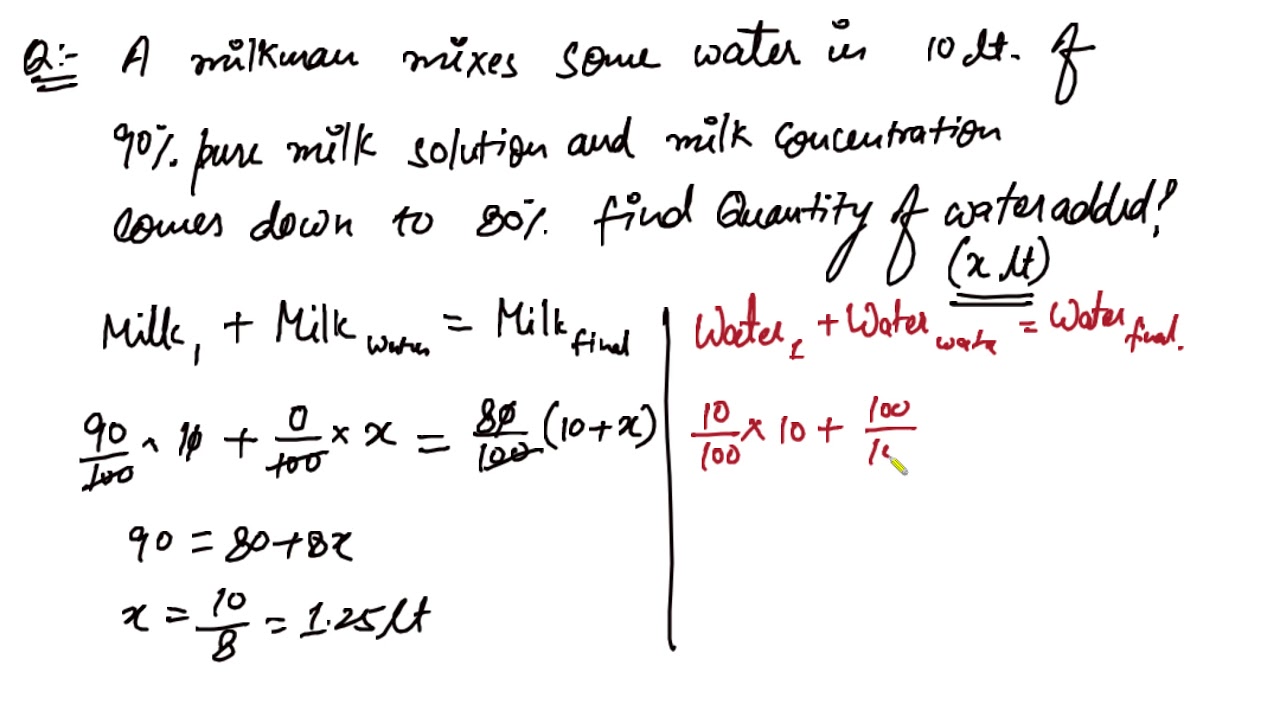 Q:- A milkman mixes some water in 10 lt. of
90% pure milk solution and milk concentration
comes down to 80%. find Quantity of water added?
(x lt)
Milk₁ + Milk water = Milk final
90/100 × 10 + 0/100 × x = 80/100 (10+x)
90 = 80+8x
x = 10/8 = 1.25 lt
Water₁ + Water water = Water final.
10/100 × 10 + 100/10